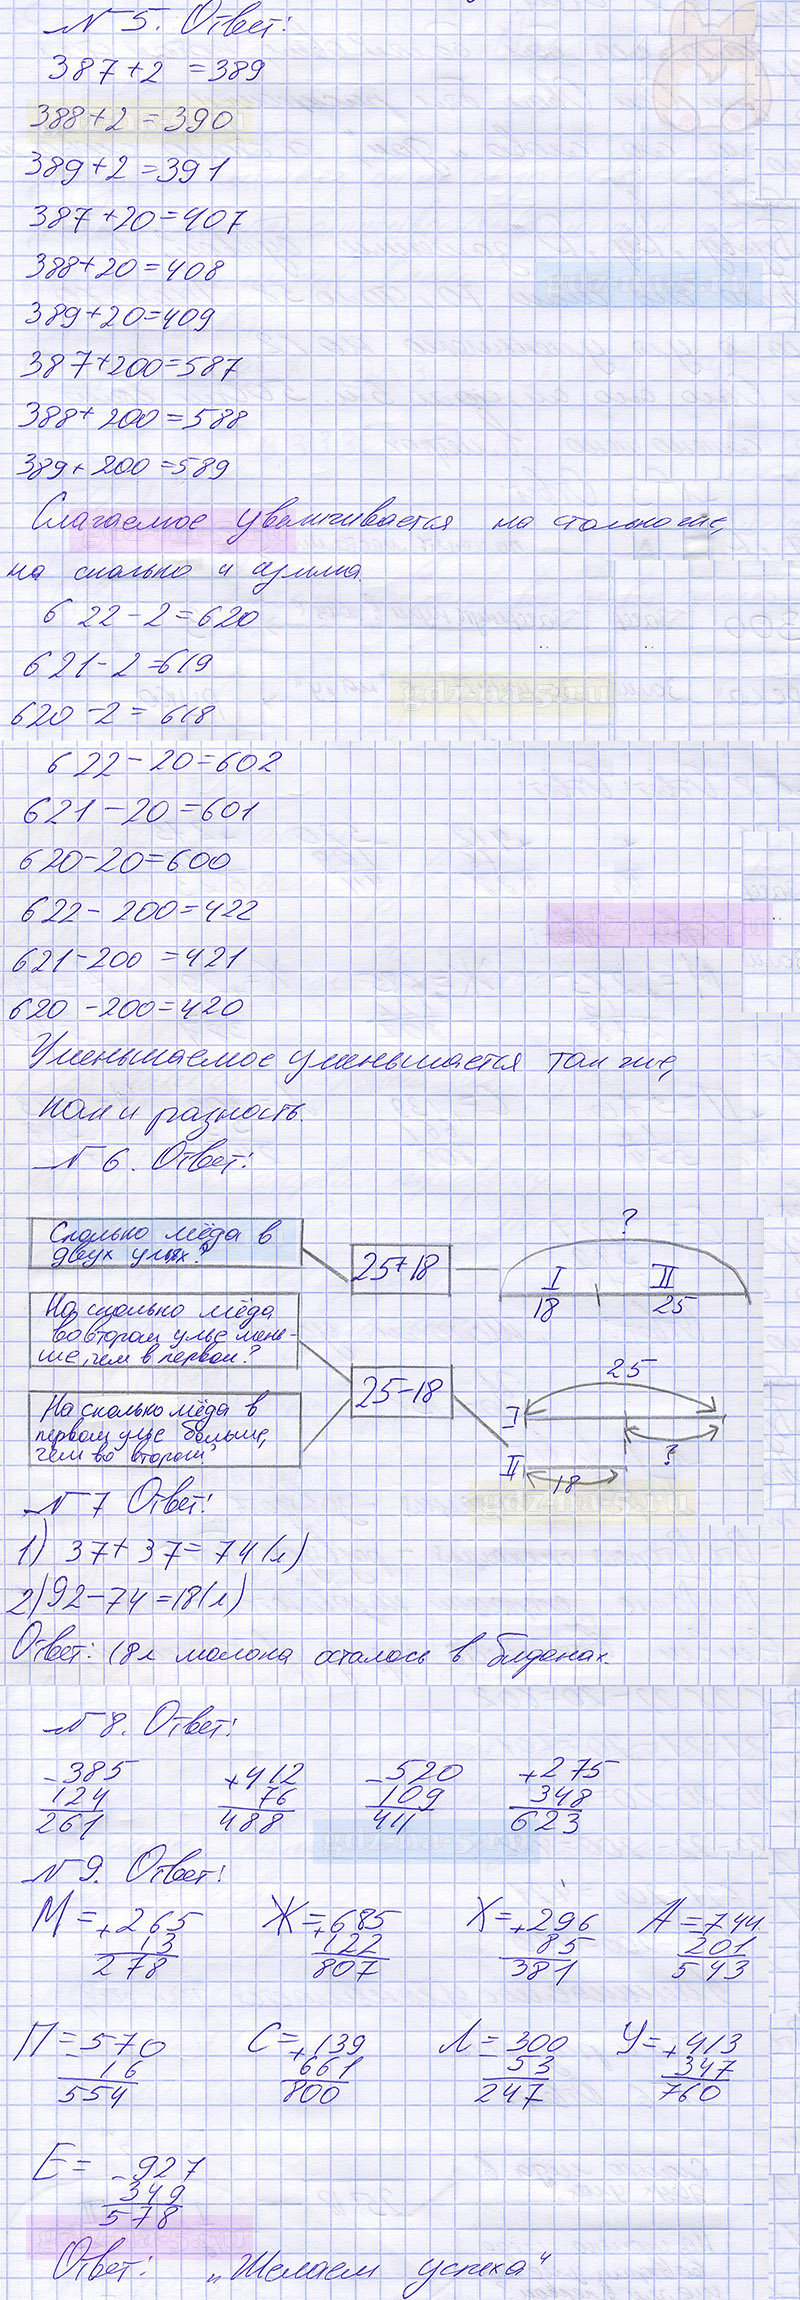 № 5. Ответ:
387+2 =389
388+2 =390
389+2 =391
387+20=407
388+20=408
389+20=409
387+200=587
388+200=588
389+200=589
Слагаемое увеличивается на столько же,
на сколько и сумма.
622-2=620
621-2=619
620-2= 618
622-20=602
621-20=601
620-20=600
622-200=422
621-200 =421
620-200=420
Уменьшаемое уменьшается так же,
как и разность.
№ 6. Ответ:
Сколько мёда в
двух ульях?
25+18
?
I II
18 25
На сколько мёда
во втором улье мень-
ше, чем в первом?
25-18
На сколько мёда в
первом улье больше,
чем во втором?
25
I
?
II
18
№ 7 Ответ:
1) 37+37=74(л)
2) 92-74=18(л)
Ответ: 18л молока осталось в бидонах.
№ 8. Ответ:
-385 +412 -520 +275
124 76 109 348
261 488 411 623
№ 9. Ответ:
М=+265 Ж=+685 Х=+296 А=-744
13 122 85 201
278 807 381 543
П=-570 С=+139 Л=-300 У=+413
16 661 53 347
554 800 247 760
Е= -927
349
578
Ответ: „Желаем успеха“